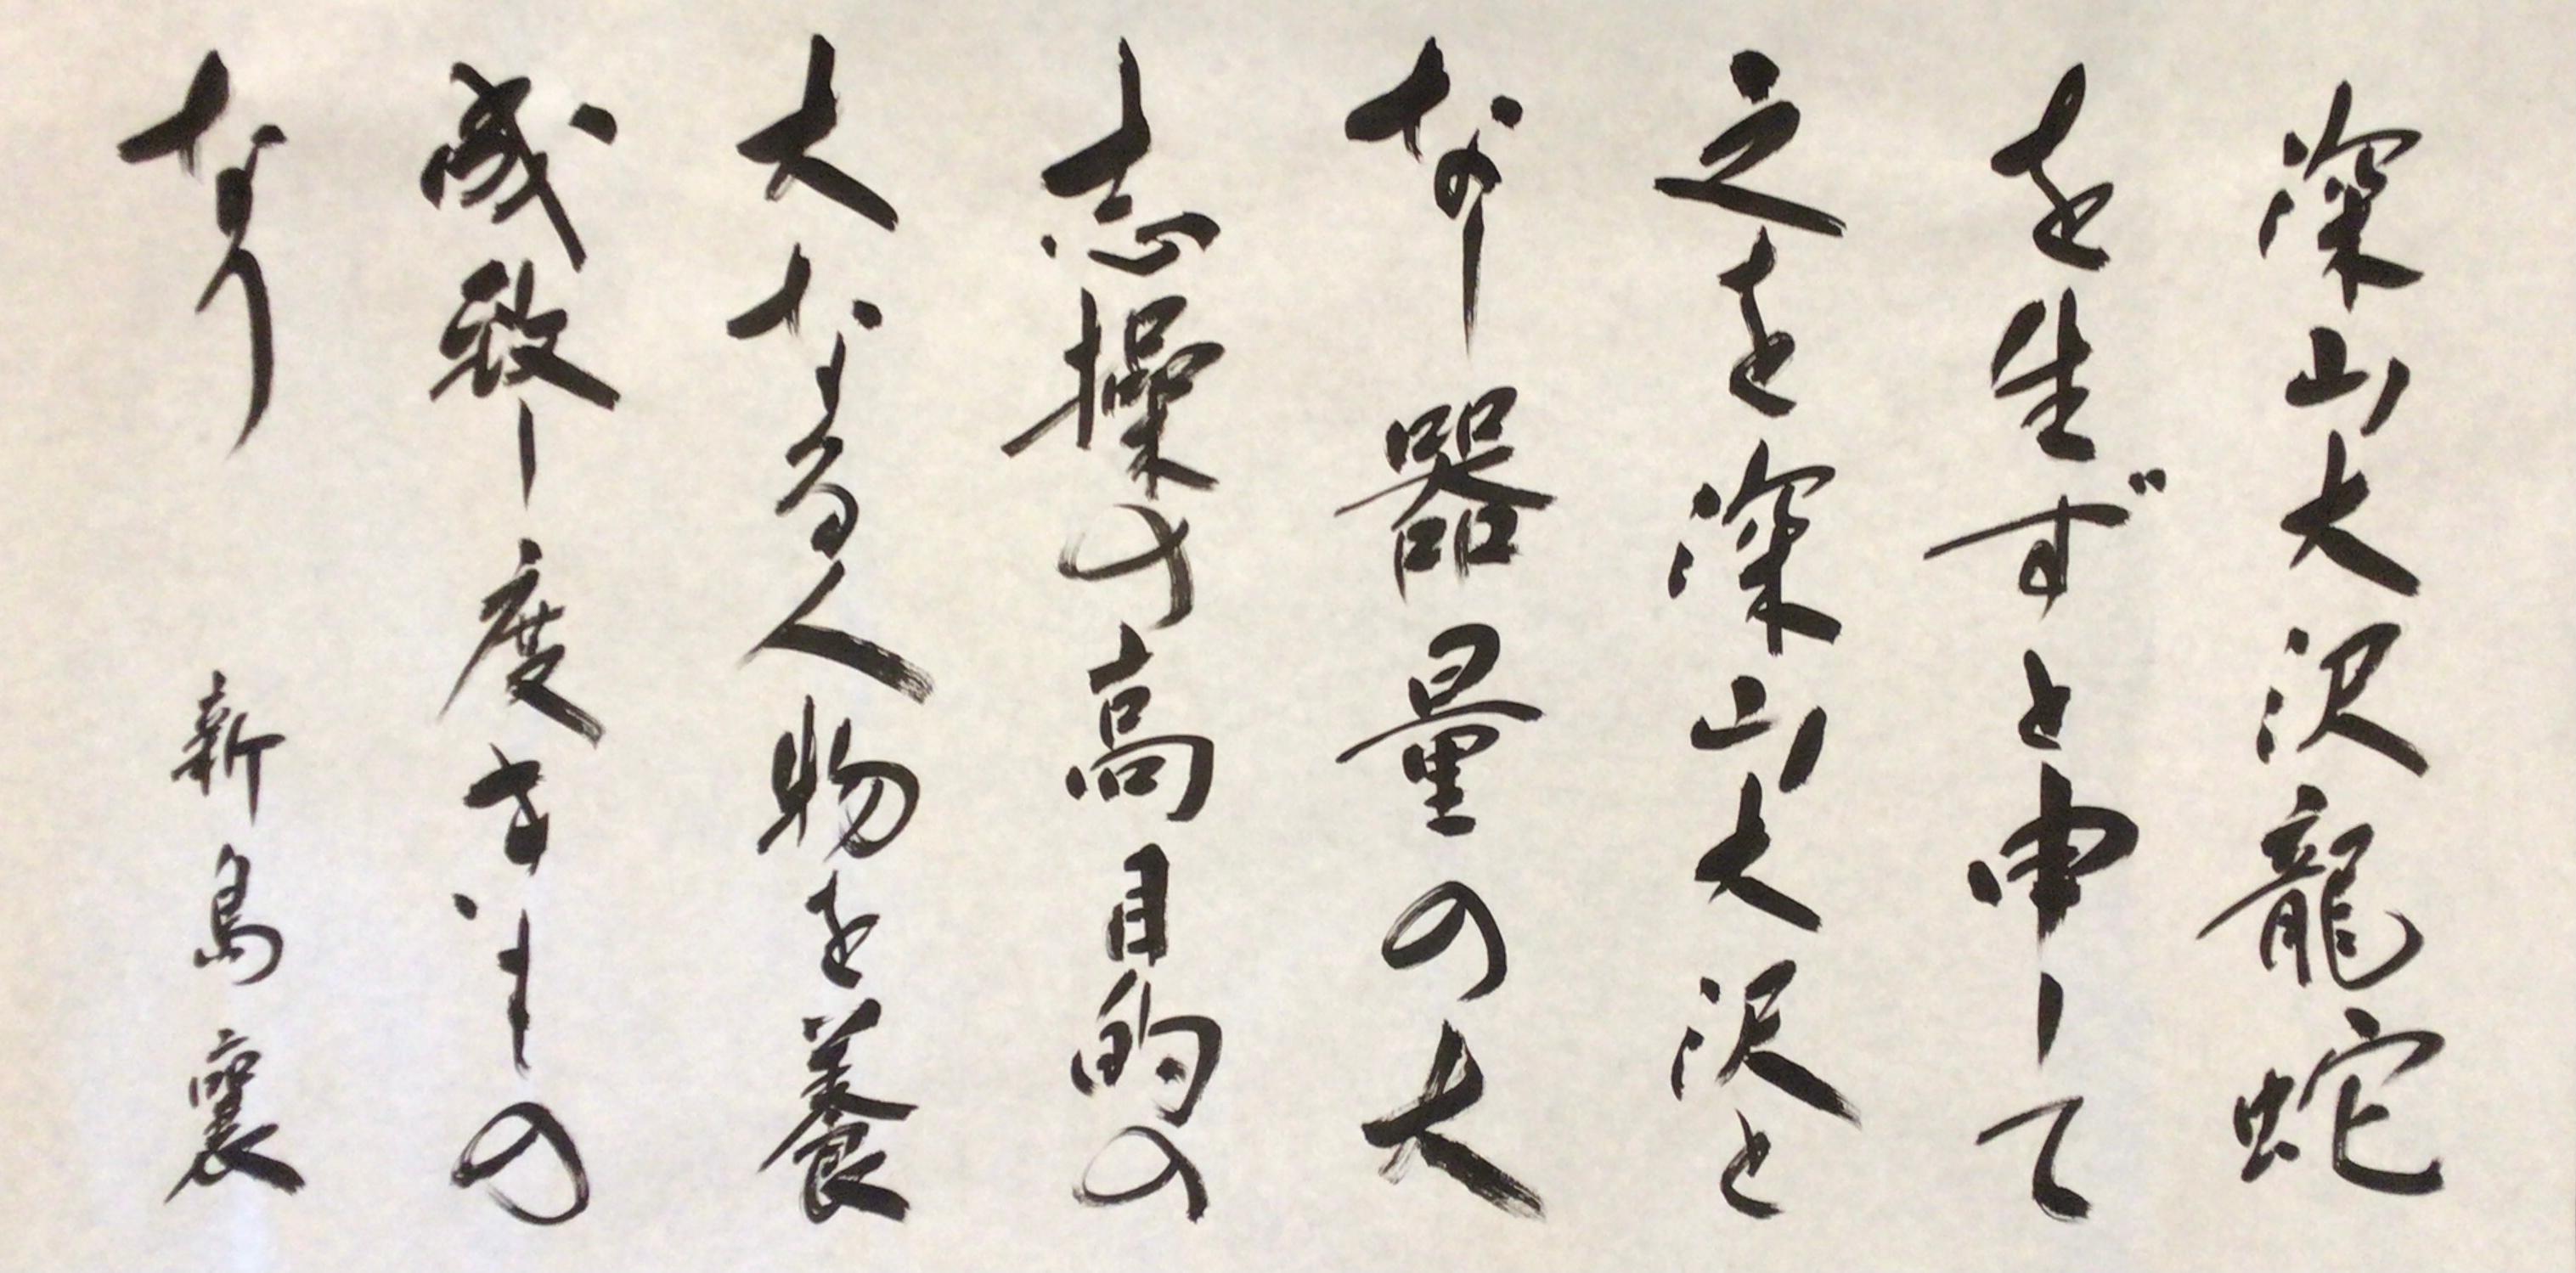 深山大沢龍蛇
を生ずと申して
之を深山大沢と
なし器量の大
志操の高目的の
大なる人物を養
成致し度きもの
なり 新島襄